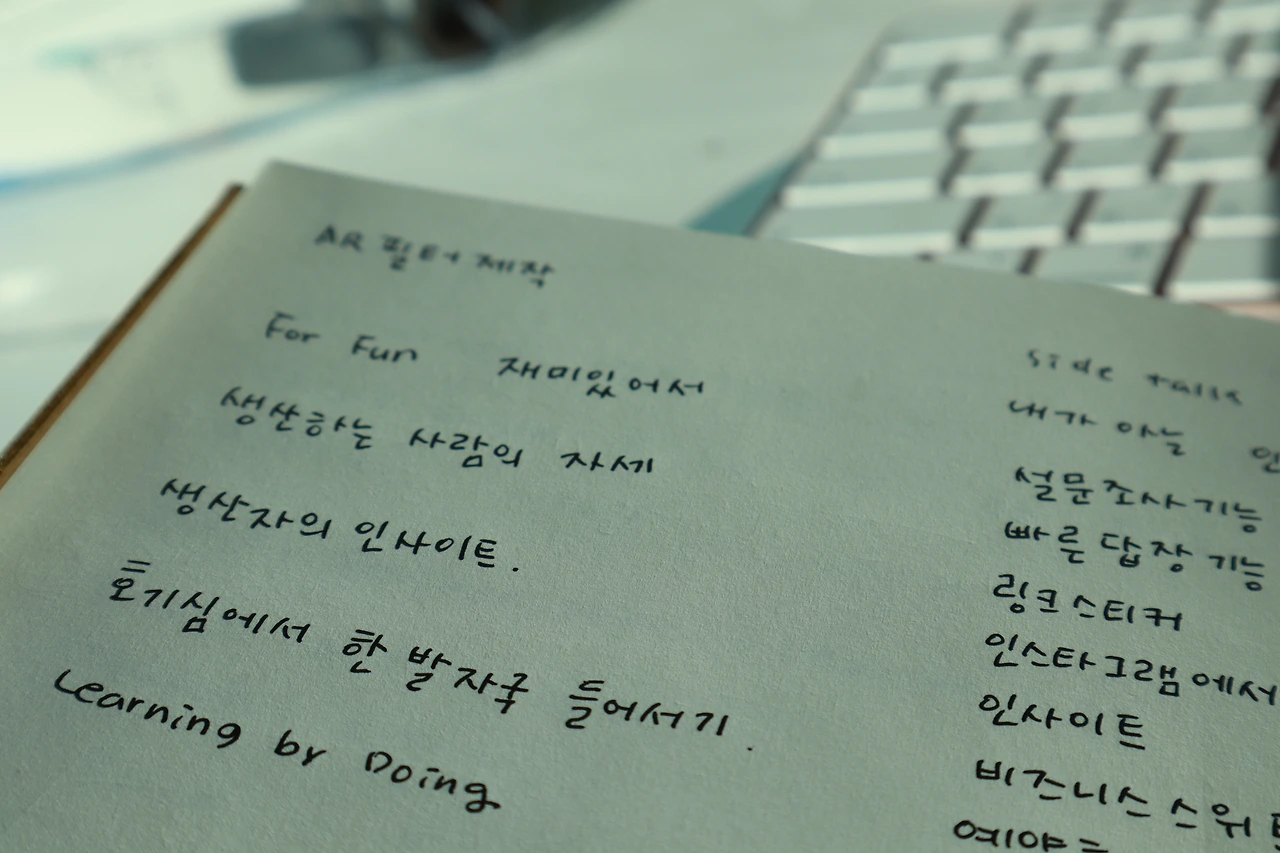 AR 필터 제작
For Fun 재미있어서
생산하는 사람의 자세
생산자의 인사이트.
호기심에서 한 발자국 들어서기.
Learning by Doing
side talk
내가 아는
설문조사기능
빠른 답장 기능
링크스티커
인스타그램에서
인사이트
비즈니스